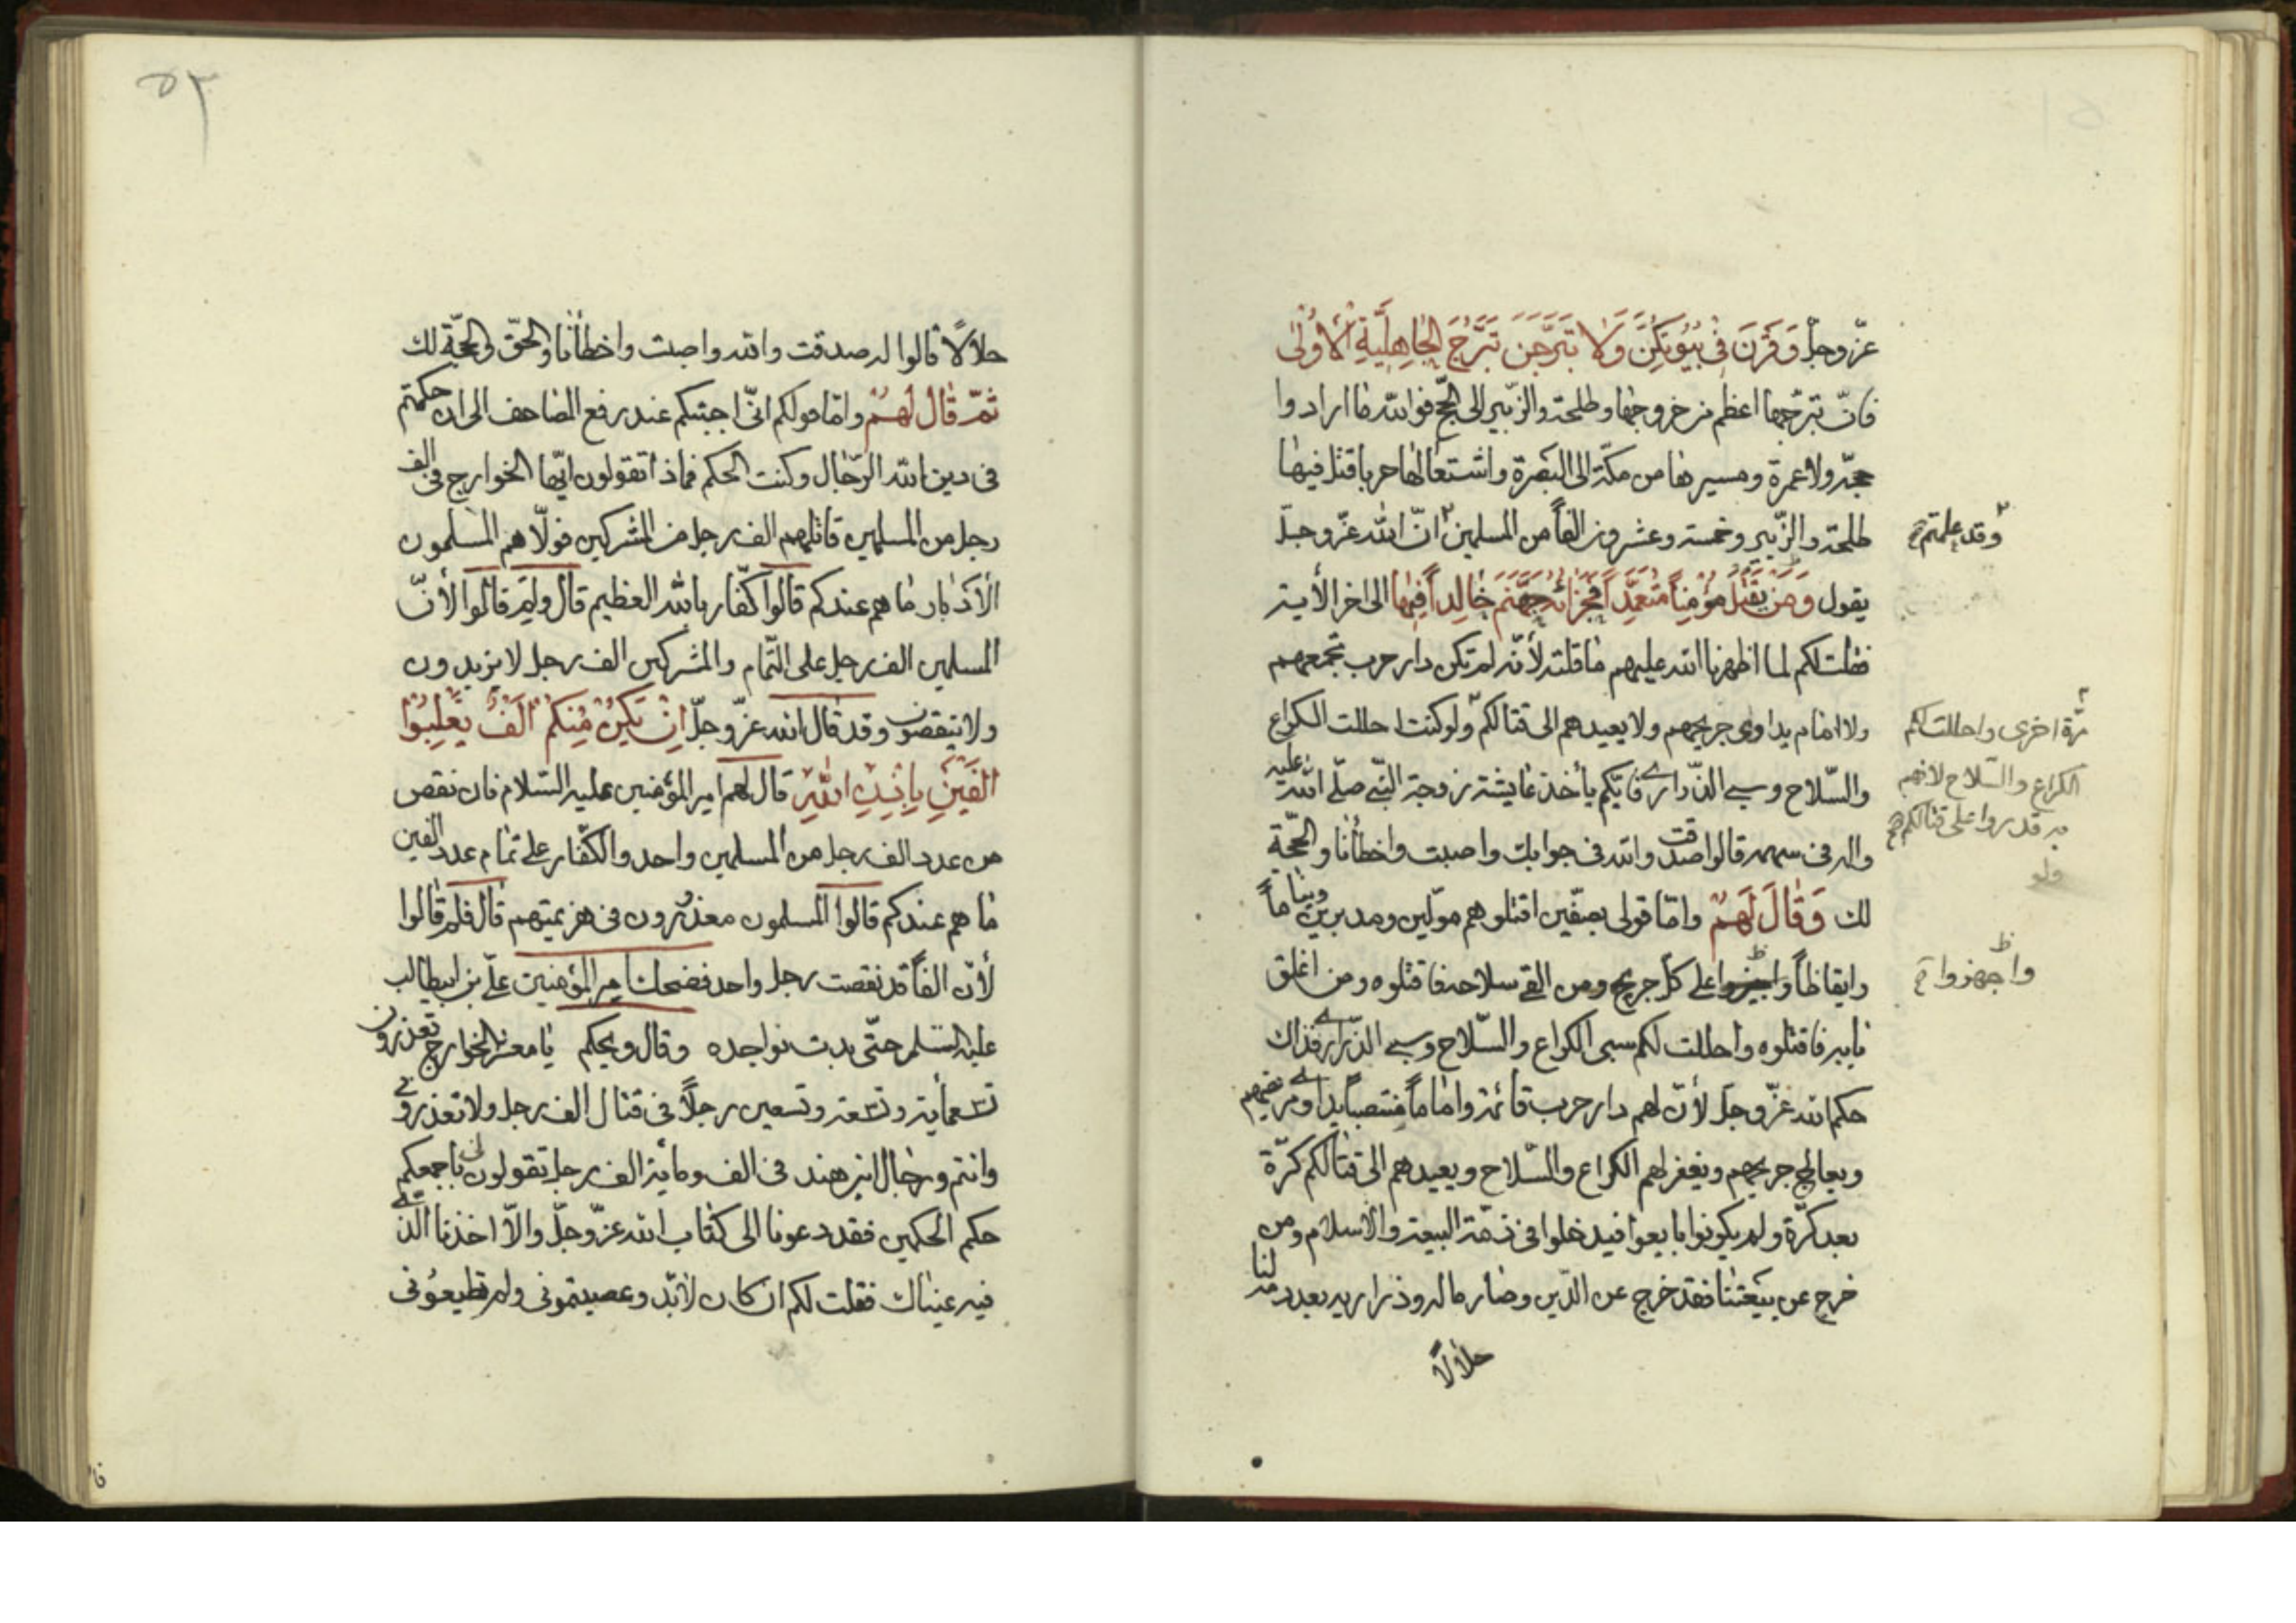 عزّ وجلّ وَقَرْنَ فِي بُيُوتِكُنَّ وَلَا تَبَرَّجْنَ تَبَرُّجَ الْجَاهِلِيَّةِ الْأُولَى
فانّ تبرّجها اعظم من خروجها وطلحة والزّبير الى الحجّ فوالله ما ارادوا
حجّة ولا عمرة ومسيرها من مكّة الى البَصْرة واشتعالها حربا قتل فيها
طلحة والزّبير وخمسة وعشرون الفاً من المسلمين انّ الله عزّ وجلّ
وقد علمتم صح
يقول وَمَنْ يَقْتُلْ مُؤْمِناً مُتَعَمِّداً فَجَزَائُهُ جَهَنَّمُ خَالِداً فِيهَا الى اخر الأية
فقلت لكم لما اظهرنا الله عليهم ما قلته لأنّه لم تكن دار حرب تجمعهم
ولا امام يداوى جريحهم ولا يعيدهم الى قتالكم ولو كنت احللت الكراع
مرّة اخرى واحللت لكم
الكراع والسّلاح لانهم
به قدروا على قتالكم صح
ولو
والسّلاح وسبي الذّراري فايّكم يأخذ عايشة زوجة النّبي صلّى الله عليه
واله في سهمه قالوا صدقت والله في جوابك واصبت واخطأنا والحجّة
لك وَقَالَ لَهُمْ وامّا قولى بصفّين اقتلوهم مولّين ومدبرين ونياماً
وايقاظاً واجيزوا على كلّ جريح ومن القى سلاحه فاقتلوه ومن اغلق
واجهزوا ظ
بابه فاقتلوه واحللت لكم سبى الكراع والسّلاح وسبي الذّراري فذاك
حكم الله عزّ وجلّ لأنّ لهم دار حرب قائمة واماماً منتصباً يداوى مريضهم
ويعالج جريحهم ويغفر لهم الكراع والسّلاح ويعيدهم الى قتالكم كرّة
بعد كرّة ولم يكونوا بايعوا فيدخلوا في ذمّة البيعة والاسلام ومن
خرج عن بيعتنا فقد خرج عن الدّين وصار ماله وذراريه بعد دمه لنا
حلالًا
۵۳
حلالاً قالوا له صدقت والله واصبت واخطأنا والحقّ والحجّة لك
ثمّ قَالَ لَهُمْ وامّا قولكم انّى اجبتكم عند رفع المصاحف الى ان حكمتم
في دين الله الرّجال وكنت الحكم فماذا تقولون ايّها الخوارج في الف
رجل من المسلمين قاتلهم الف رجل من المشركين فولّاهم المسلمون
الأدبار ما هم عندكم قالوا كفّار بالله العظيم قال ولم قالوا لأنّ
المسلمين الف رجل على التّمام والمشركين الف رجل لا يزيدون
ولا ينقصون وقد قال الله عزّ وجلّ اِنْ يَكُنْ مِنْكُمْ اَلْفٌ يَغْلِبُوا
اَلْفَيْنِ بِاِذْنِ اللهِ قال لهم امير المؤمنين عليه السّلام فان نقص
من عدد الف رجل من المسلمين واحد والكفّار على تمام عدد الفين
ما هم عندكم قالوا المسلمون معذورون في هزيمتهم قال فلم قالوا
لأنّ الفاً قد نقصت رجل واحد فضحك امير المؤمنين علىّ بن ابيطالب
عليه السّلم حتّى بدت نواجده وقال ويحكم يا معشر الخوارج تعذرون
تسعمأية وتسعة وتسعين رجلاً في قتال الف رجل ولا تعذروني
وانتم ورجال ابن هند في الف ومأية الف رجل تقولون لى باجمعكم
حكم الحكمين فقد دعونا الى كتاب الله عزّ وجلّ والّا اخذنا الّذي
فيه عيناك فقلت لكم ان كان لابّد وعصيتموني ولم تطيعُوني